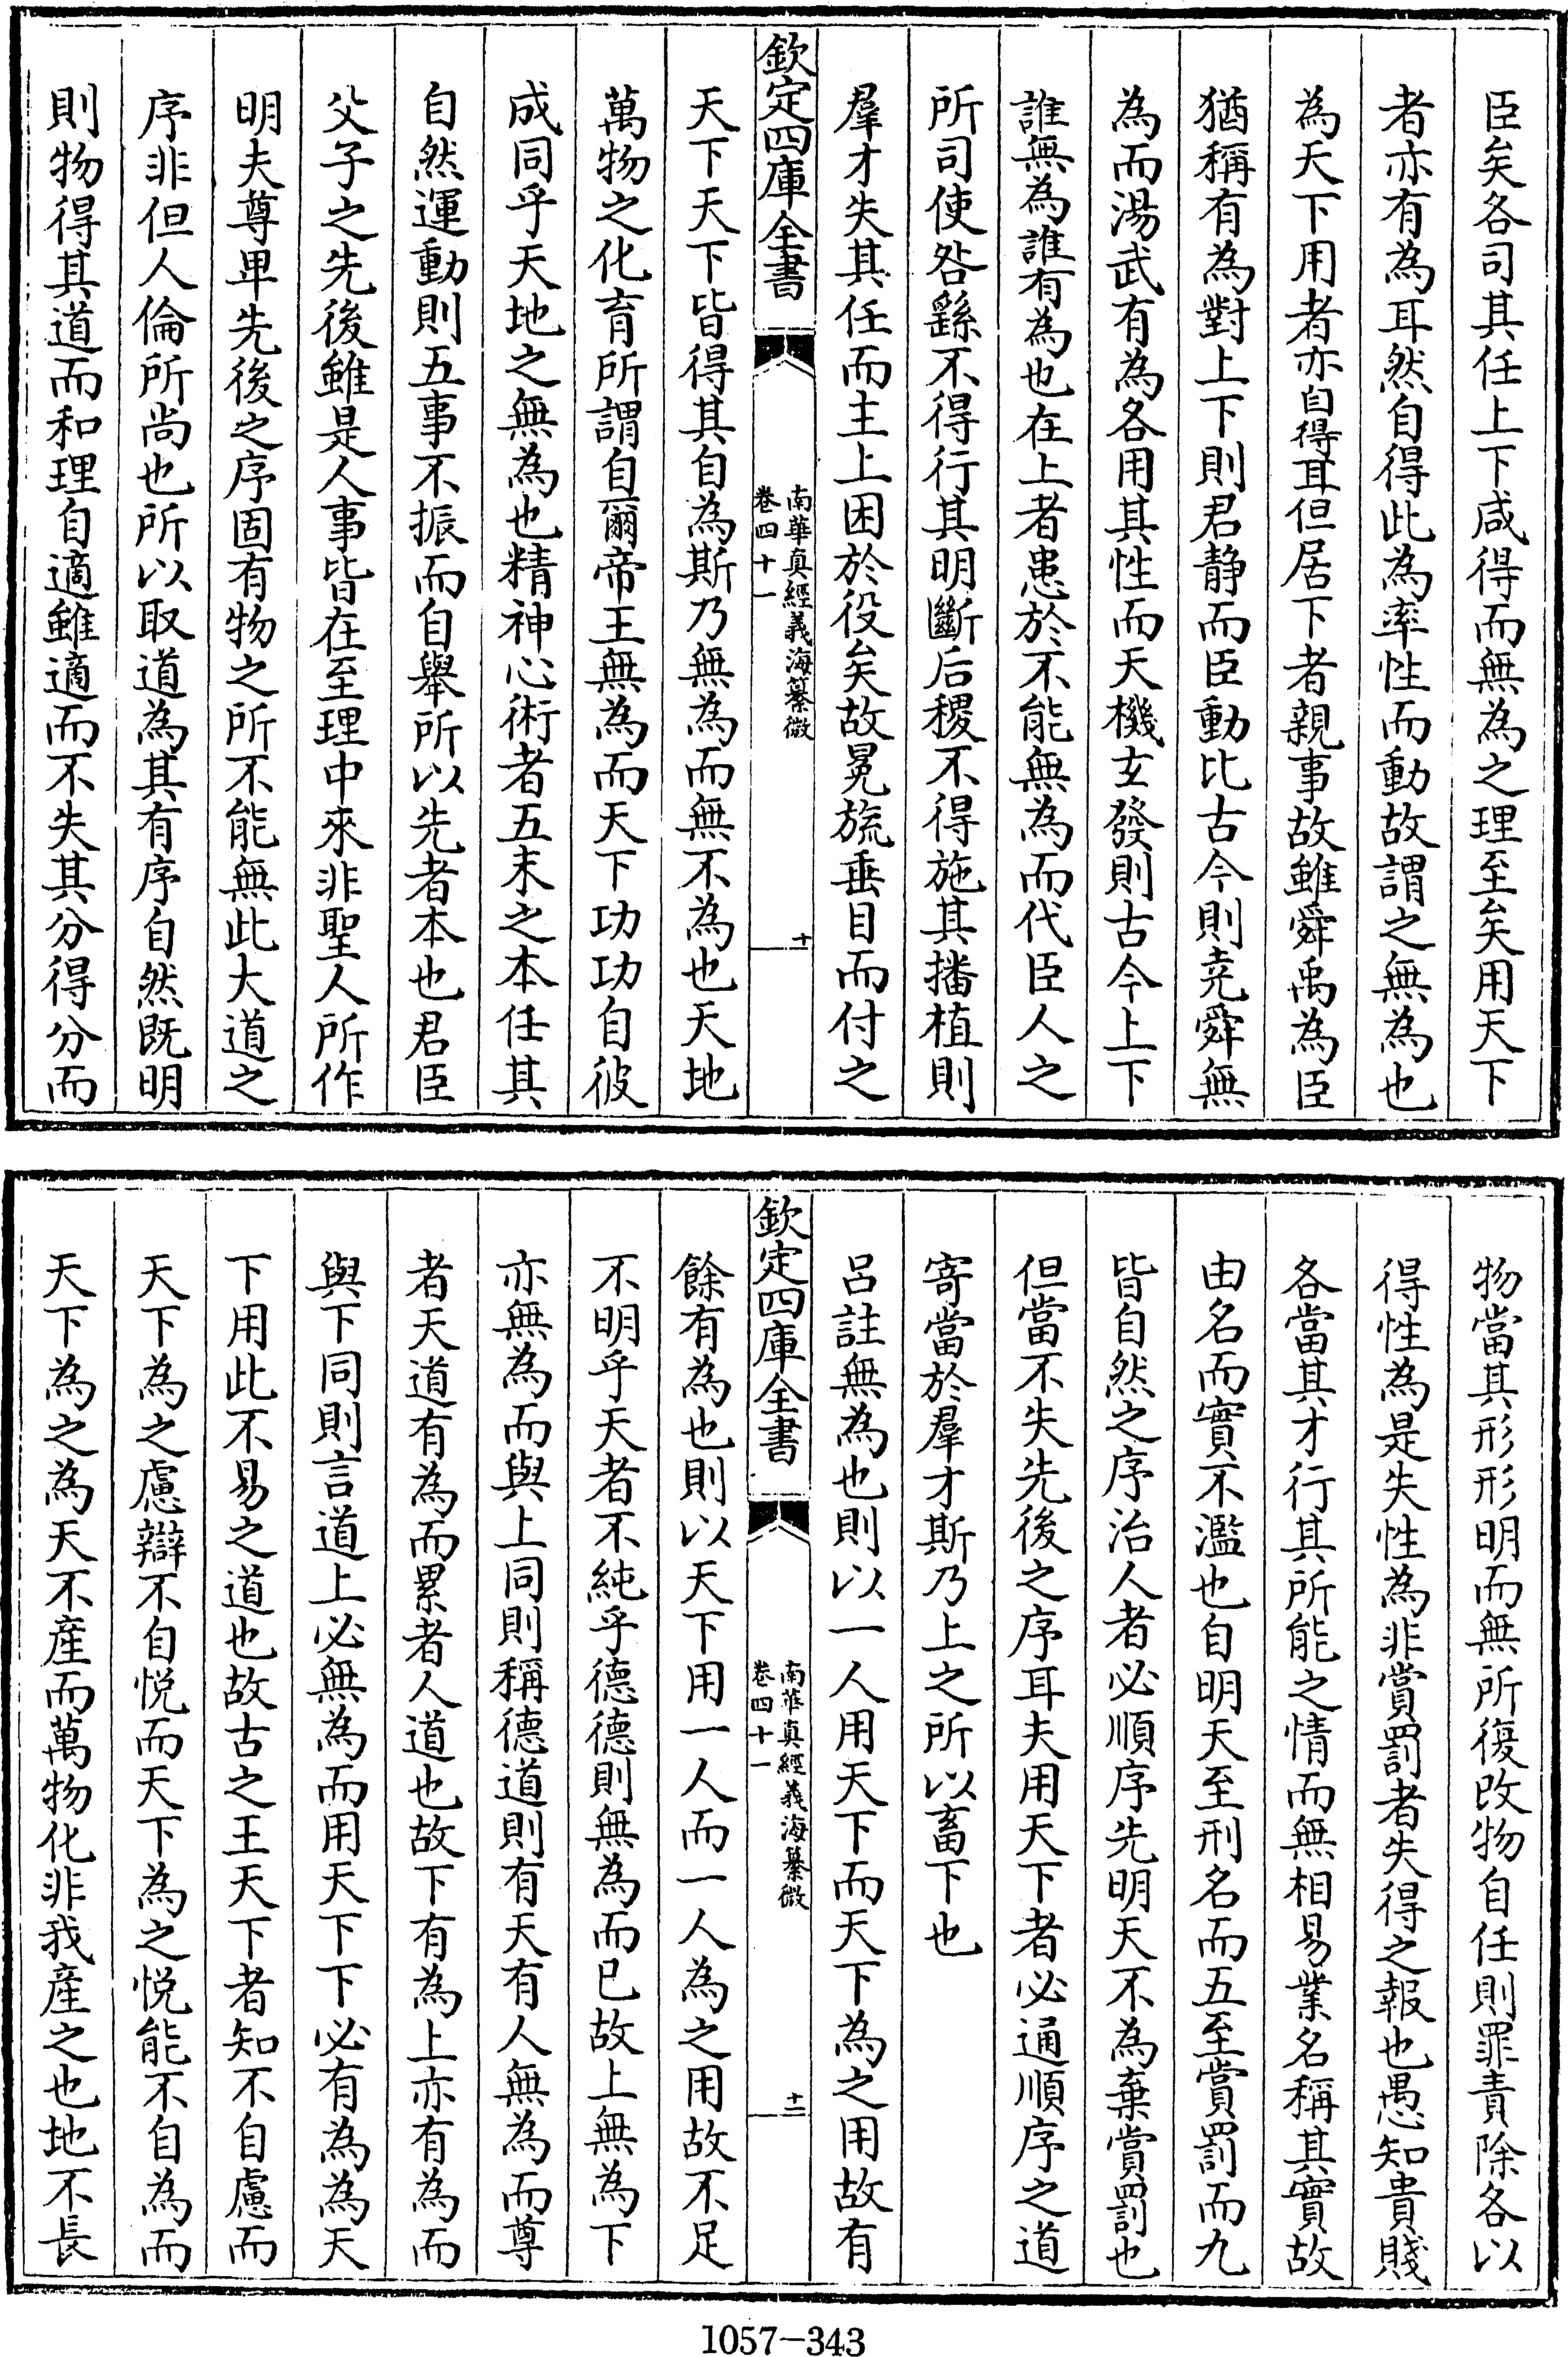 臣矣各司其任上下咸得而無為之理至矣用天下
者亦有為耳然自得此為率性而動故謂之無為也
為天下用者亦自得耳但居下者親事故雖舜禹為臣
猶稱有為對上下則君静而臣動比古今則堯舜無
為而湯武有為各用其性而天機玄發則古今上下
誰無為誰有為也在上者患於不能無為而代臣人之
所司使咎繇不得行其明斷后稷不得施其播植則
羣才失其任而主上困於役矣故冕旒垂目而付之
欽定四庫全書
南華真經義海纂微
卷四十一
十
天下天下皆得其自為斯乃無為而無不為也天地
萬物之化育所謂自爾帝王無為而天下功功自彼
成同乎天地之無為也精神心術者五末之本任其
自然運動則五事不振而自舉所以先者本也君臣
父子之先後雖是人事皆在至理中來非聖人所作
明夫尊卑先後之序固有物之所不能無此大道之
序非但人倫所尚也所以取道為其有序自然既明
則物得其道而和理自適雖適而不失其分得分而
物當其形形明而無所復改物自任則罪責除各以
得性為是失性為非賞罰者失得之報也愚知貴賤
各當其才行其所能之情而無相易業名稱其實故
由名而實不濫也自明天至刑名而五至賞罰而九
皆自然之序治人者必順序先明天不為棄賞罰也
但當不失先後之序耳夫用天下者必通順序之道
寄當於羣才斯乃上之所以畜下也
呂註無為也則以一人用天下而天下為之用故有
欽定四庫全書
南華真經義海纂微
卷四十一
十一
餘有為也則以天下用一人而一人為之用故不足
不明乎天者不純乎德德則無為而已故上無為下
亦無為而與上同則稱德道則有天有人無為而尊
者天道有為而累者人道也故下有為上亦有為而
與下同則言道上必無為而用天下下必有為為天
下用此不易之道也故古之王天下者知不自慮而
天下為之慮辯不自悅而天下為之悅能不自為而
天下為之為天不產而萬物化非我產之也地不長
1057-343